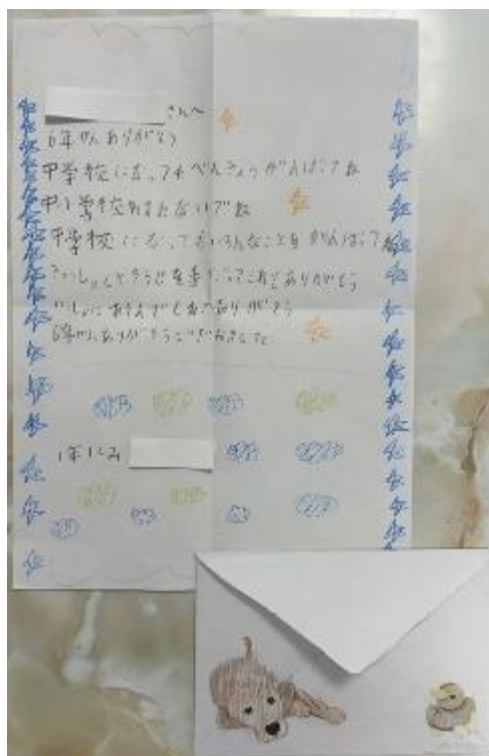 さんへ
6年かんありがとう
中学校になってもべんきょうがんばってね
中小学校わすれないでね
中学校になってもいろんなことをがんばってね
きゅうしょくやそうじを手つだってくれてありがとう
いっしょにあそんでくれてありがとう
6年かんありがとうございました
1年1くみ